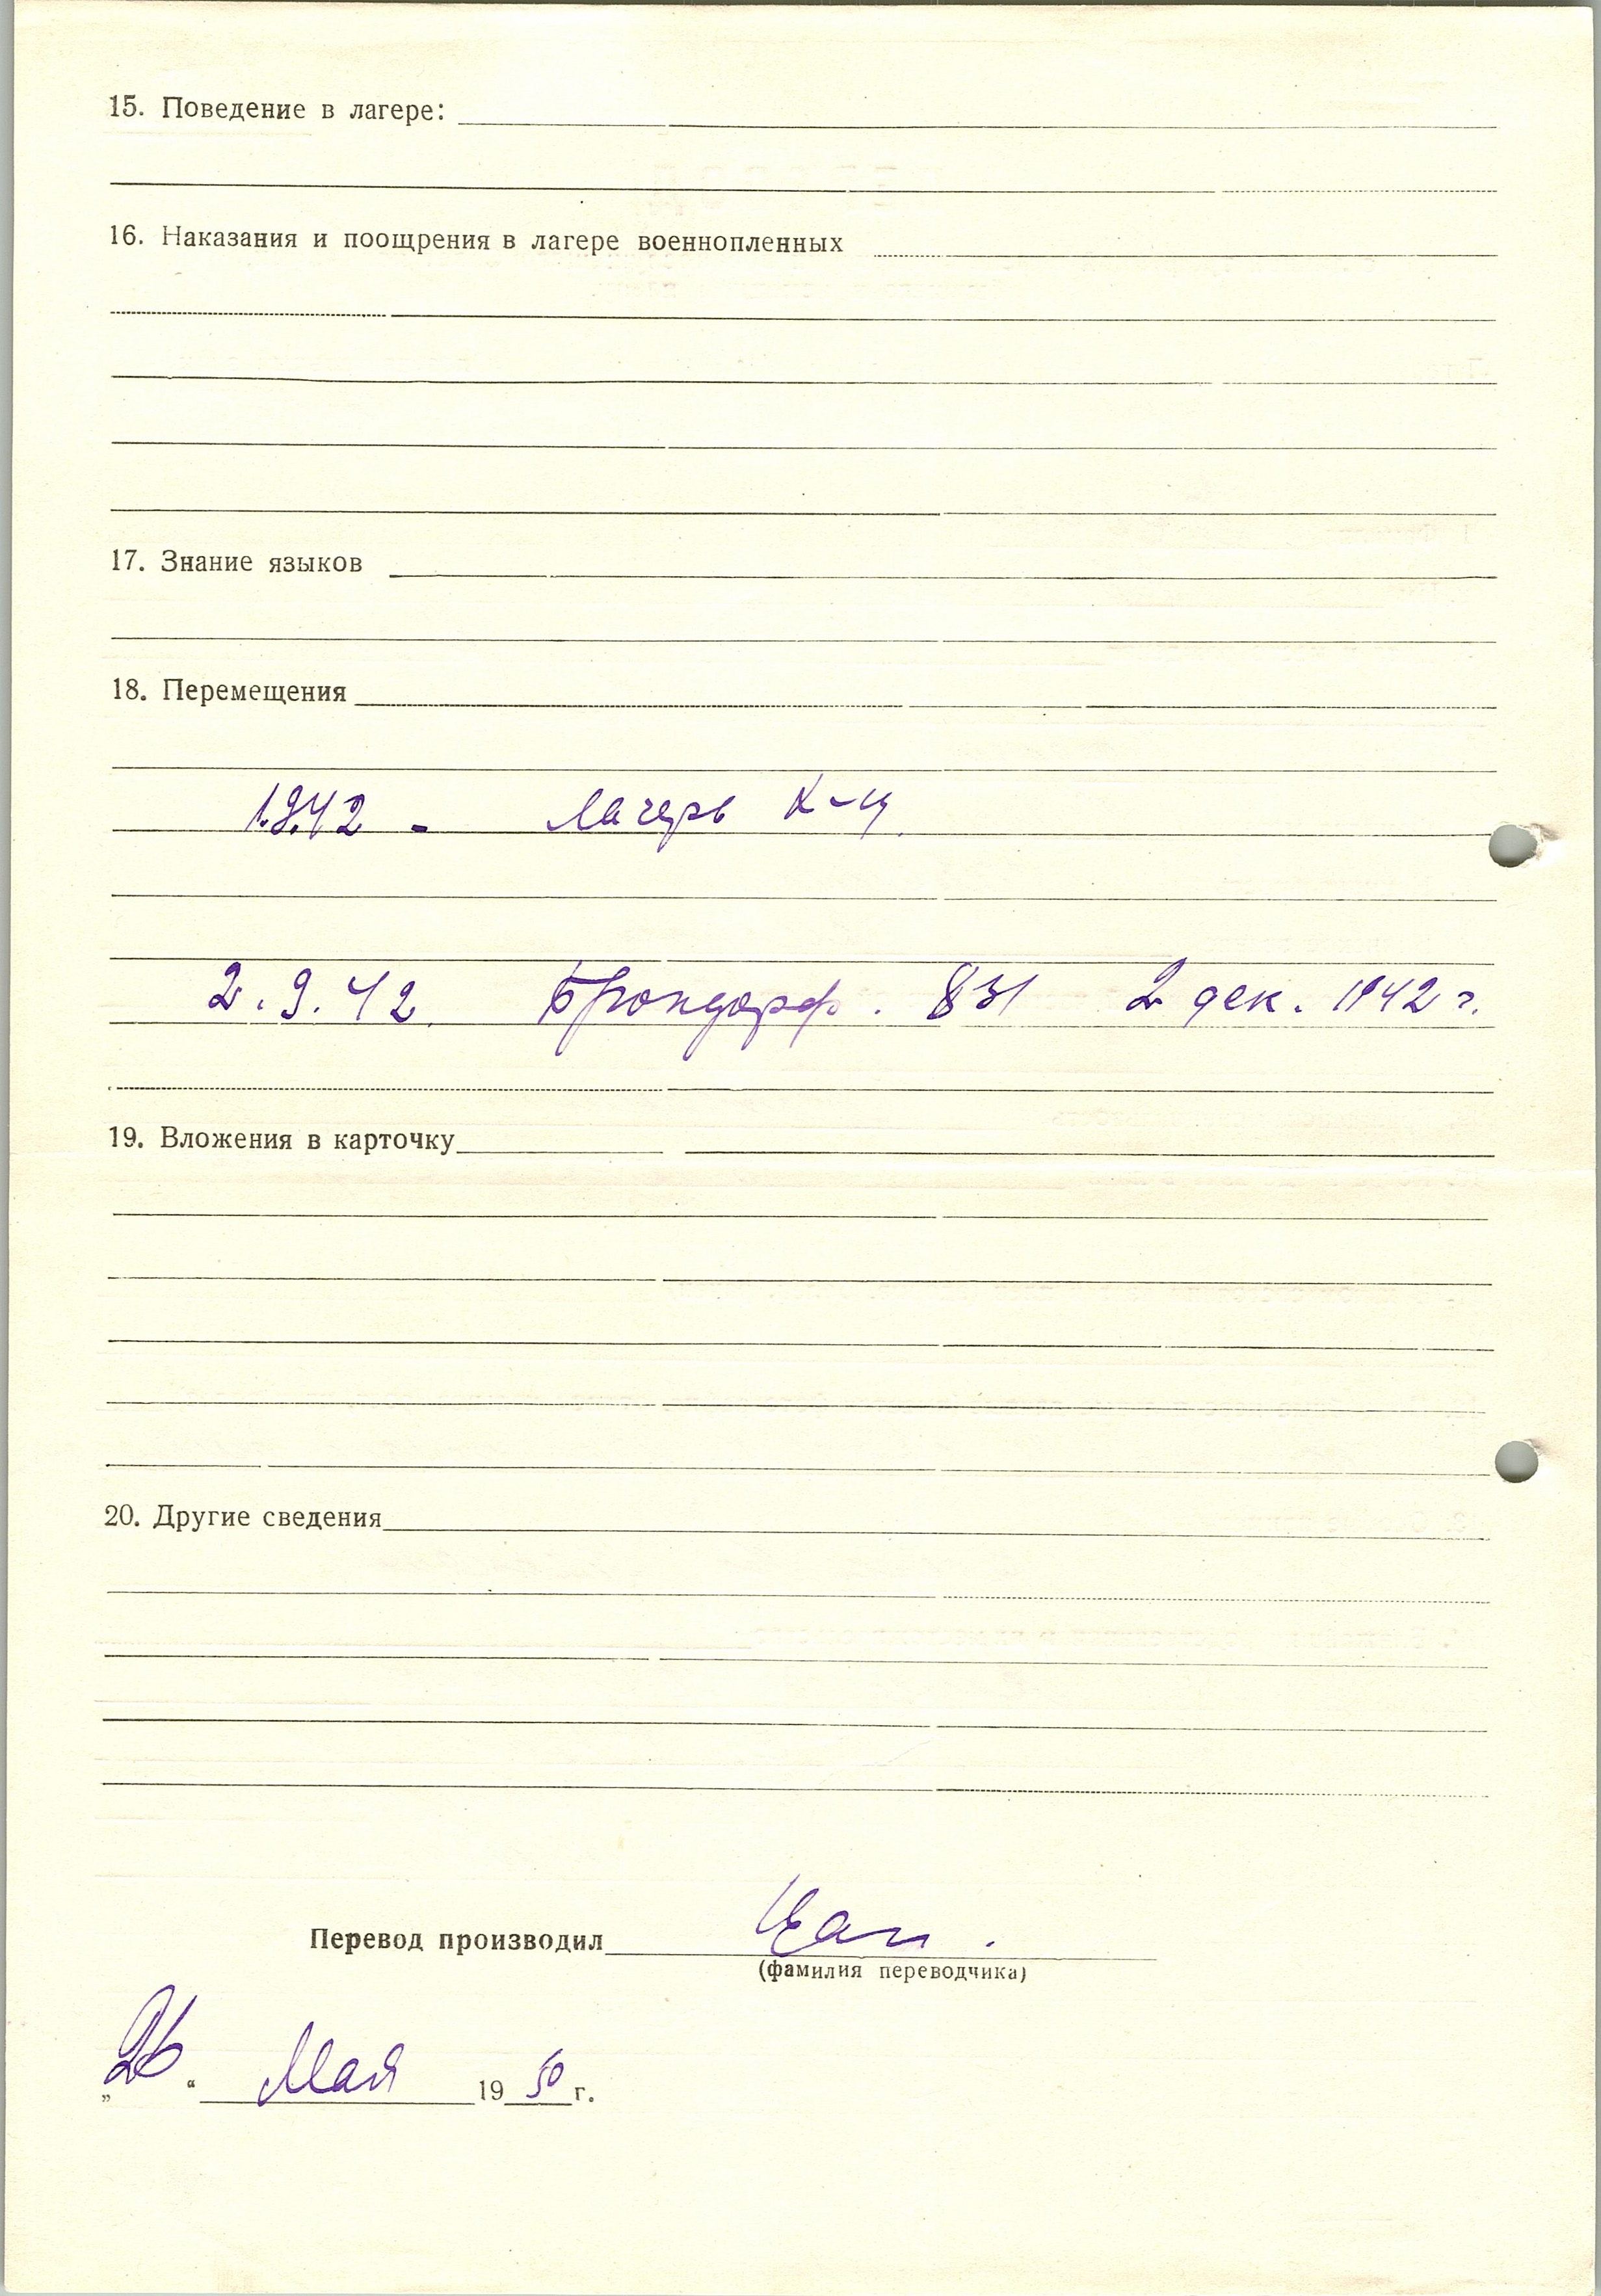 15. Поведение в лагере:
16. Наказания и поощрения в лагере военнопленных
17. Знание языков
18. Перемещения
1.9.42 - лагерь К-Щ
2.9.42. Брокдорф. 831 2 дек. 1942 г.
19. Вложения в карточку
20. Другие сведения
Перевод производил
(фамилия переводчика)
„26“ Мая 1950 г.